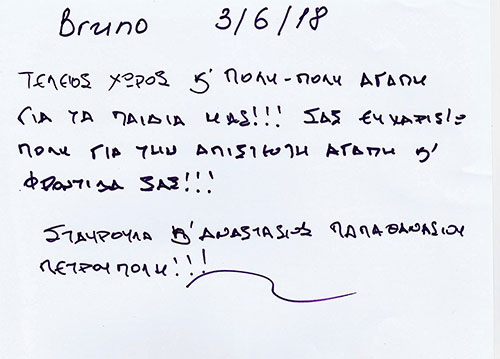 Bruno 3/6/18
ΤΕΛΕΙΟΣ ΧΩΡΟΣ Κ' ΠΟΛΗ-ΠΟΛΗ ΑΓΑΠΗ
ΓΙΑ ΤΑ ΠΑΙΔΙΑ ΜΑΣ!!! ΣΑΣ ΕΥΧΑΡΙΣΤΩ
ΠΟΛΗ ΓΙΑ ΤΗΝ ΑΠΙΣΤΕΥΤΗ ΑΓΑΠΗ Κ'
ΦΡΟΝΤΙΔΑ ΣΑΣ!!!
ΣΤΑΥΡΟΥΛΑ Κ' ΑΝΑΣΤΑΣΙΟΣ ΠΑΠΑΘΑΝΑΣΙΟΥ
ΠΕΤΡΟΥΠΟΛΗ!!!